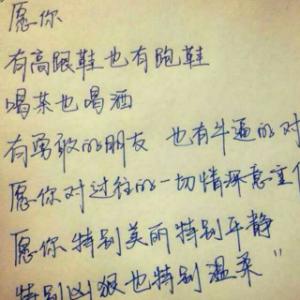 愿你
有高跟鞋也有跑鞋
喝茶也喝酒
有勇敢的朋友 也有牛逼的对
愿你对过往的一切情深意重但
愿你特别美丽特别平静
特别凶狠也特别温柔"